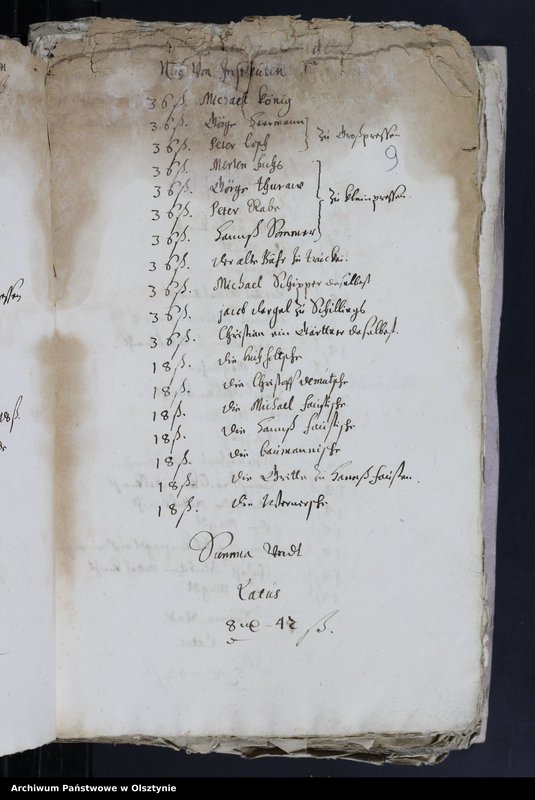 Von Instleuten
36 ß. Michael König
36 ß. Görge Herrmann
36 ß. Peter } Zu Großpressen
9
36 ß. Merten Fuchs
36 ß. Görge Thuraw
36 ß. Peter Rabe } Zu kleinpressen.
36 ß. Hannß Sommer
36 ß. der alte
36 ß. Michael Schipper daselbest
36 ß. Jacob Dargel Zu Schillings
36 ß. Christian ein Gärttner daselbest.
18 ß. die
18 ß. die Christoff
18 ß. die Michael
18 ß. die Hannß
18 ß. die Baumannische
18 ß. die Gritte Zu Hannß
18 ß. die Wernersche
Summa
Latus
8 - 42 ß.
Archiwum Państwowe w Olsztynie